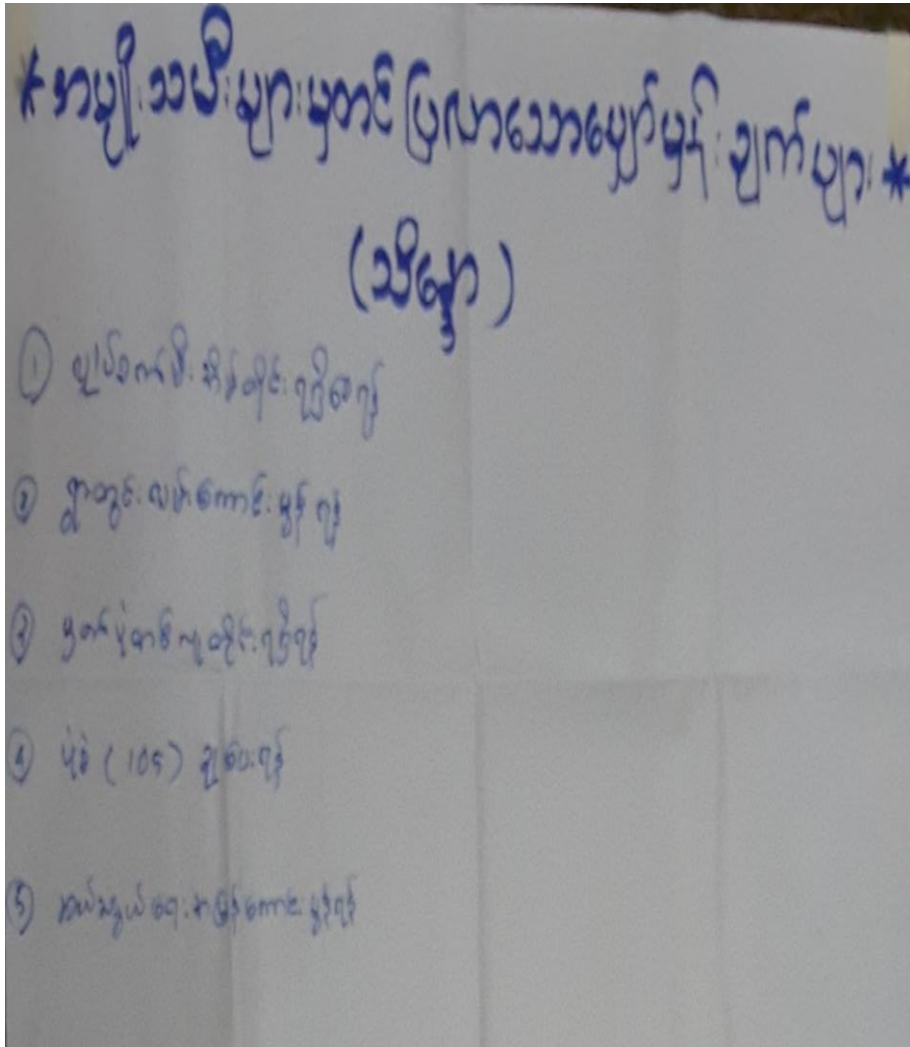 *အမျိုးသမီးများမှတင်ပြလာသောမျှော်မှန်းချက်များ*
(သိန္ဒော)
① လျှပ်စက်မီးအိမ်တိုင်းရရှိစေရန်
② ရွာတွင်းလမ်းကောင်းမွန်ရန်
③ မှတ်ပုံတင်လူတိုင်းရရှိရန်
④ ပုံစံ (105) ချပေးရန်
⑤ ဆယ်သွယ်ရေးအမြန်ကောင်းမွန်ရန်